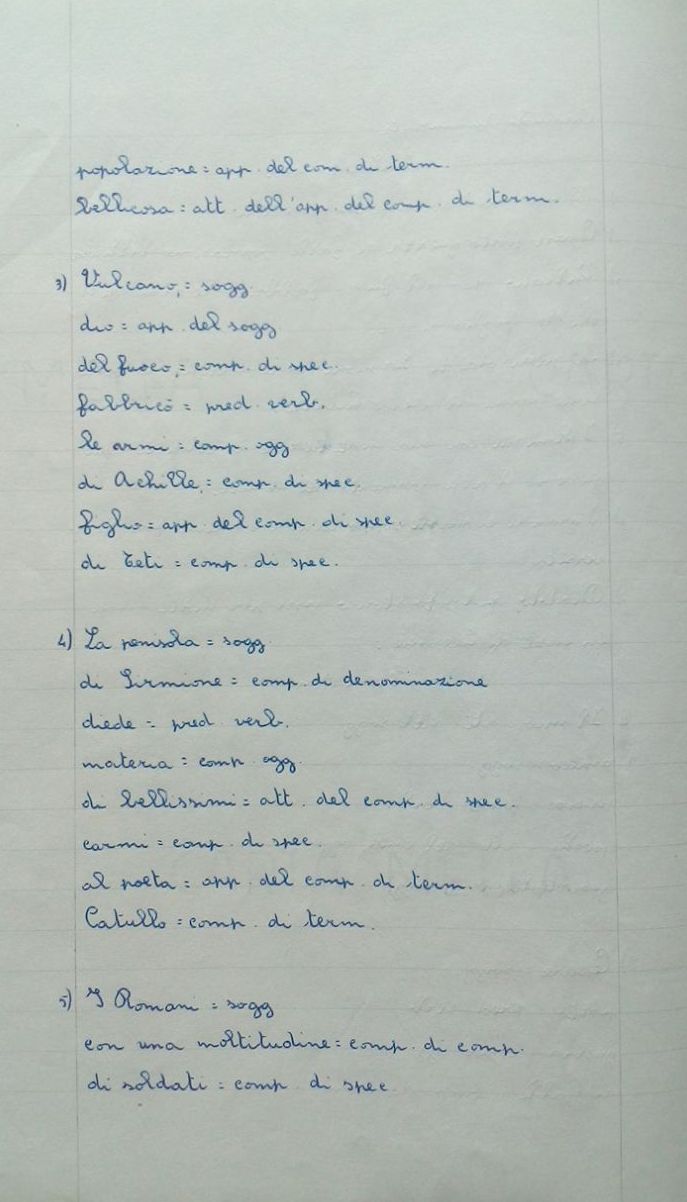 popolazione = app. del com. di term.
bellicosa = att. dell'app. del comp. di term.
3) Vulcano, = sogg.
dio = app. del sogg
del fuoco, = comp. di spec.
fabbricò = pred. verb.
le armi = comp. ogg
di Achille, = comp. di spec.
figlio = app. del comp. di spec.
di Teti = comp. di spec.
4) La penisola = sogg.
di Sirmione = comp. di denominazione
diede = pred. verb.
materia = comp. ogg.
di bellissimi = att. del comp. di spec.
carmi = comp. di spec.
al poeta = app. del comp. di term.
Catullo = comp. di term.
5) I Romani = sogg
con una moltitudine = comp. di comp.
di soldati = comp. di spec.